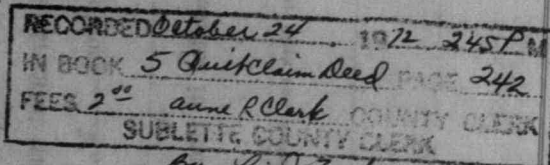 RECORDED October 24 1972 245 P M
IN BOOK 5 Quitclaim Deed PAGE 242
FEES 2 00 Anne R Clark COUNTY CLERK
SUBLETTE COUNTY CLERK
By